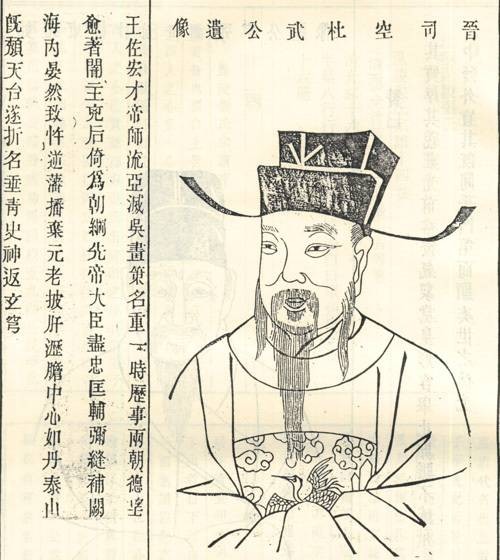 晉司空杜武公遺像
王佐宏才帝師流亞滅吳畫策名重一時歷事兩朝德望
愈著闇主兇后倚爲朝綱先帝大臣盡忠匡輔彌縫補闕
海內晏然致忤逆藩播棄元老披肝瀝膽中心如丹泰山
旣頽天台遂折名垂青史神返玄穹